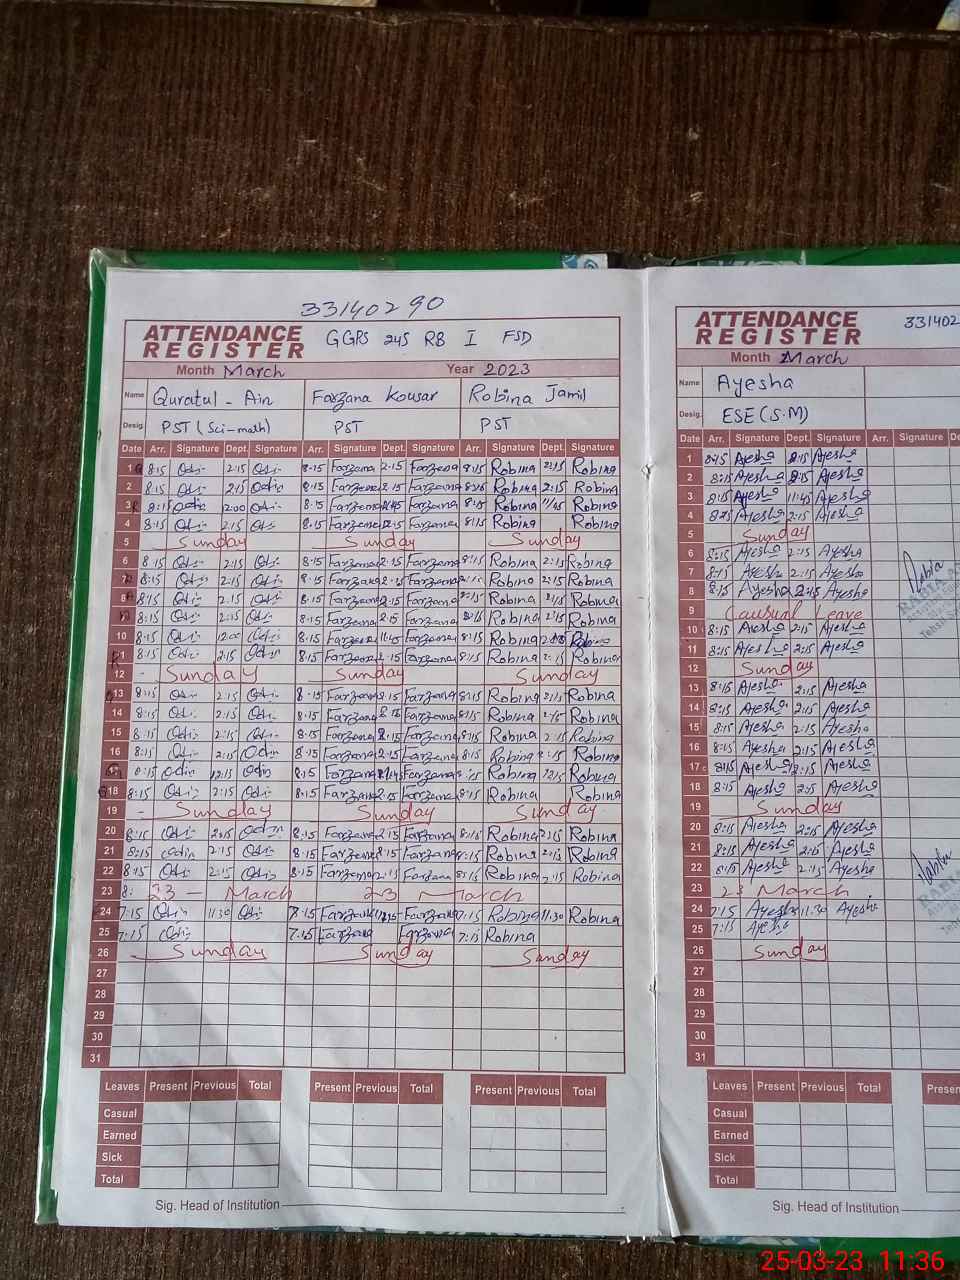 33140290
ATTENDANCE
REGISTER
GGPS 245 RB I FSD
Month March Year 2023
Name Quratul-Ain Farzana Kousar Robina Jamil
Desig. PST (Sci-math) PST PST
Date Arr. Signature Dept. Signature Arr. Signature Dept. Signature Arr. Signature Dept. Signature
1 8:15 2:15 8:15 Farzana 2:15 Farzana 8:15 Robina 2:15 Robina
2 8:15 2:15 8:15 Farzana 2:15 Farzana 8:15 Robina 2:15 Robina
3 8:15 12:00 8:15 Farzana 11:45 Farzana 8:15 Robina 11:45 Robina
4 8:15 2:15 8:15 Farzana 2:15 Farzana 8:15 Robina Robina
5 Sunday Sunday Sunday
6 8:15 2:15 8:15 Farzana 2:15 Farzana 8:15 Robina 2:15 Robina
7 8:15 2:15 8:15 Farzana 2:15 Farzana Robina 2:15 Robina
8 8:15 2:15 8:15 Farzana 2:15 Farzana Robina 2:15 Robina
9 8:15 2:15 8:15 Farzana 2:15 Farzana Robina 2:15 Robina
10 8:15 12:00 8:15 Farzana 11:45 Farzana 8:15 Robina Robina
11 8:15 2:15 8:15 Farzana 2:15 Farzana 8:15 Robina Robina
12 - Sunday Sunday Sunday
13 8:15 2:15 8:15 Farzana 2:15 Farzana 8:15 Robina 2:15 Robina
14 8:15 2:15 8:15 Farzana Farzana 8:15 Robina Robina
15 8:15 2:15 8:15 Farzana 2:15 Farzana 8:15 Robina 2:15 Robina
16 8:15 2:15 8:15 Farzana 2:15 Farzana 8:15 Robina 2:15 Robina
8:15 12:15 8:15 Farzana Farzana Robina 12:15 Robina
18 8:15 2:15 8:15 Farzana 2:15 Farzana 8:15 Robina Robina
19 - Sunday Sunday Sunday
20 8:15 2:15 8:15 Farzana 2:15 Farzana 8:15 Robina 2:15 Robina
21 8:15 2:15 8:15 Farzana 2:15 Farzana 8:15 Robina 2:15 Robina
22 8:15 2:15 8:15 Farzana 2:15 Farzana 8:15 Robina 2:15 Robina
23 8: 23 - March 23 March
24 7:15 11:30 7:15 Farzana Farzana 7:15 Robina 11:30 Robina
25 7:15 7:15 Farzana Farzana 7:15 Robina
26 Sunday Sunday Sunday
27
28
29
30
31
Leaves Present Previous Total Present Previous Total Present Previous Total
Casual
Earned
Sick
Total
Sig. Head of Institution
331402
ATTENDANCE
REGISTER
Month March
Name Ayesha
Desig. ESE (S.M)
Date Arr. Signature Dept. Signature Arr. Signature
1 Ayesha 2:15 Ayesha
2 8:15 Ayesha 2:15 Ayesha
3 8:15 Ayesha 11:45 Ayesha
4 8:15 Ayesha 2:15 Ayesha
5 Sunday
6 8:15 Ayesha 2:15 Ayesha
7 8:15 Ayesha 2:15 Ayesha
8 8:15 Ayesha 2:15 Ayesha
9 Causual Leave
10 8:15 Ayesha 2:15 Ayesha
11 8:15 Ayesha 2:15 Ayesha
12 Sunday
13 8:15 Ayesha 2:15 Ayesha
14 8:15 Ayesha 2:15 Ayesha
15 8:15 Ayesha 2:15 Ayesha
16 8:15 Ayesha 2:15 Ayesha
17 8:15 Ayesha Ayesha
18 8:15 Ayesha 2:15 Ayesha
19 Sunday
20 8:15 Ayesha 2:15 Ayesha
21 8:15 Ayesha 2:15 Ayesha
22 8:15 Ayesha 2:15 Ayesha
23 23 March
24 7:15 Ayesha 11:30 Ayesha
25 7:15 Ayesha
26 Sunday
27
28
29
30
31
Leaves Present Previous Total
Casual
Earned
Sick
Total
Sig. Head of Institution
25-03-23 11:36